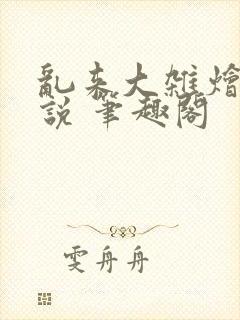 亂来大雜燴
說 筆趣閣
雯舟舟